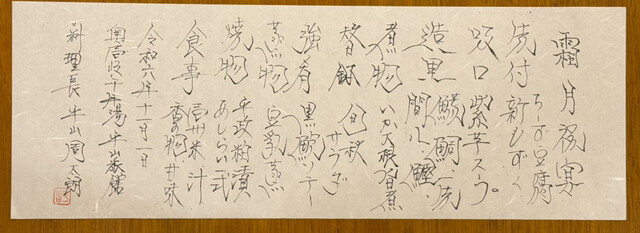 霜月祝宴
先付 ちーず豆腐
新もずく
吸口 紫芋スープ
造里 鯛
間八 鰹
煮物 いか大根旨煮
替鉢 旬秋サラダ
強肴 黒鮑ソテー
蒸し物 豆乳蒸し
焼物 平政粕漬
あしらい一式
食事 壱州米 汁
香の物 甘味
令和六年十一月一日
奥壱岐千年湯 平山旅館
料理長 平山周太朗